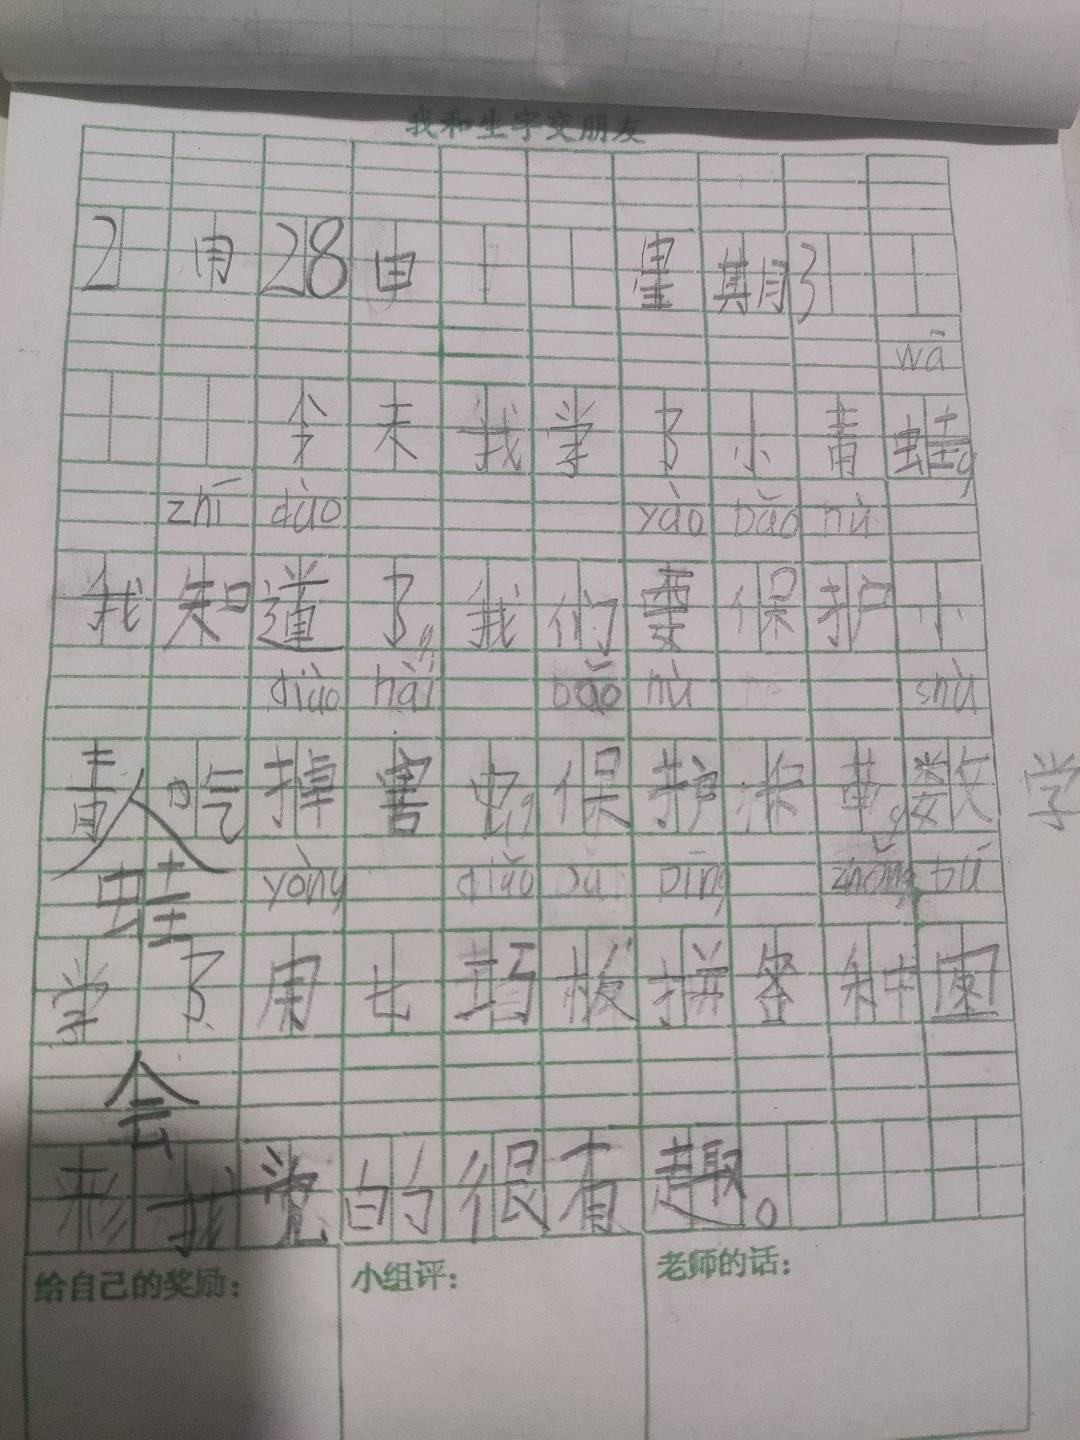 我和生字交朋友
2月28日 星期3
wā
今天我学了小青蛙,
zhī dào yào bǎo hù
我知道了,我们要保护小
diào hài bǎo hù shù
青吃掉害虫,保护禾苗,数学
蛙会 yòng qiǎo bǎn pīn zhǒng tú
学了用七巧板拼各种图
形我觉的很有趣。
给自己的奖励: 小组评: 老师的话: